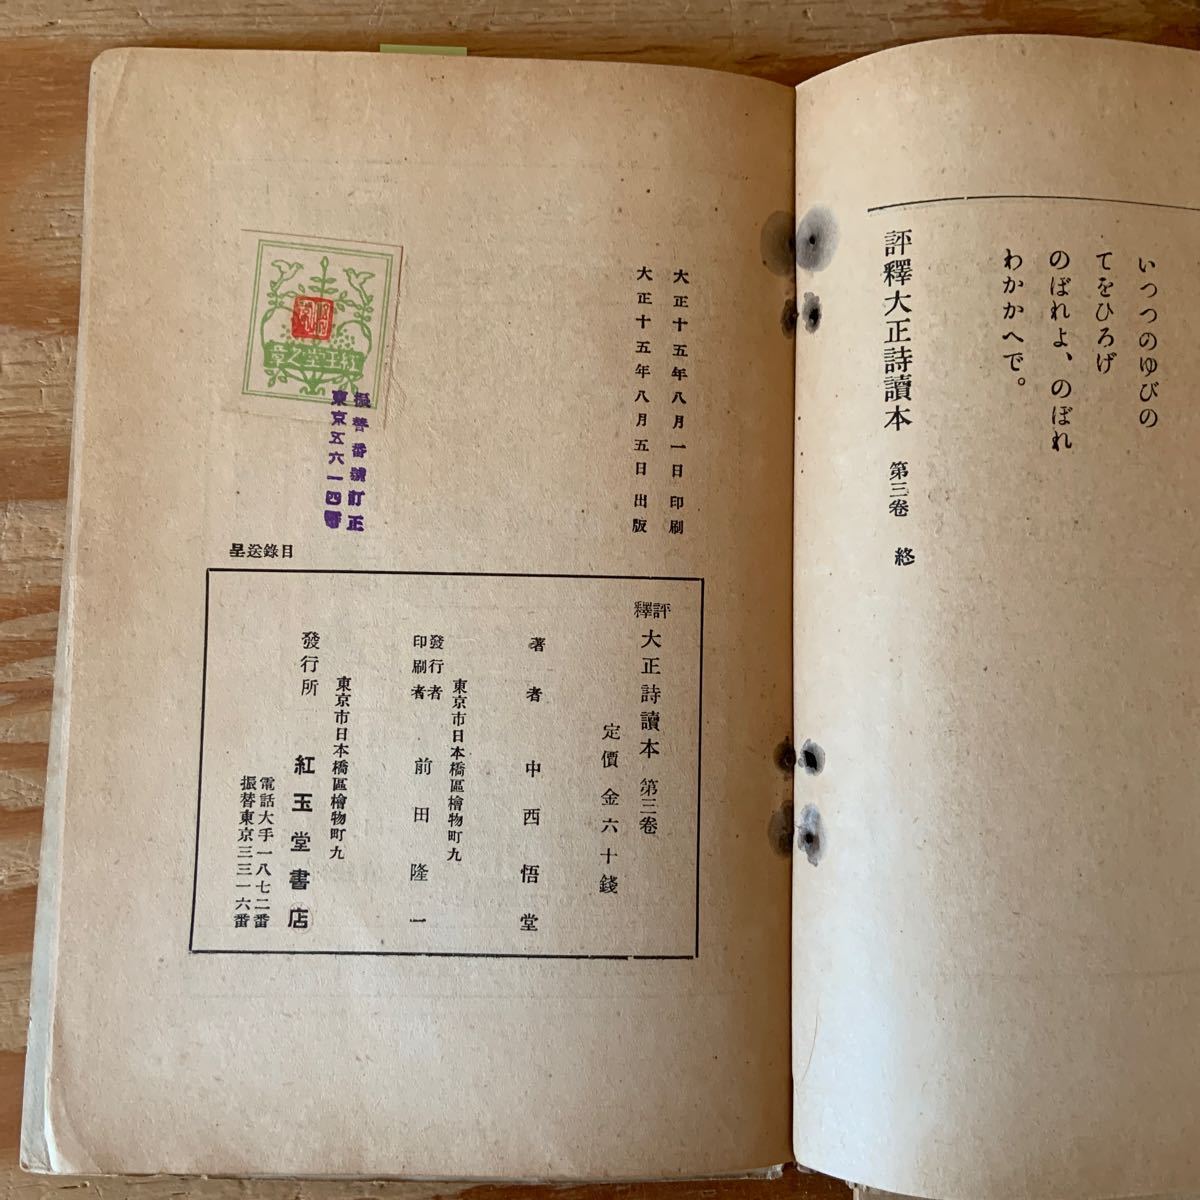 いつつのゆびの
てをひろげ
のぼれよ、のぼれ
わかかへで。
評釋大正詩讀本 第三卷 終
大正十五年八月一日印刷
大正十五年八月五日出版
紅玉堂之章
振替番號訂正
東京五六一四番
目錄送呈
評釋 大正詩讀本 第三卷
定價金六十錢
著者 中西悟堂
東京市日本橋區檜物町九
發行者
印刷者 前田隆一
東京市日本橋區檜物町九
發行所 紅玉堂書店
電話大手一八七二番
振替東京三三一六番